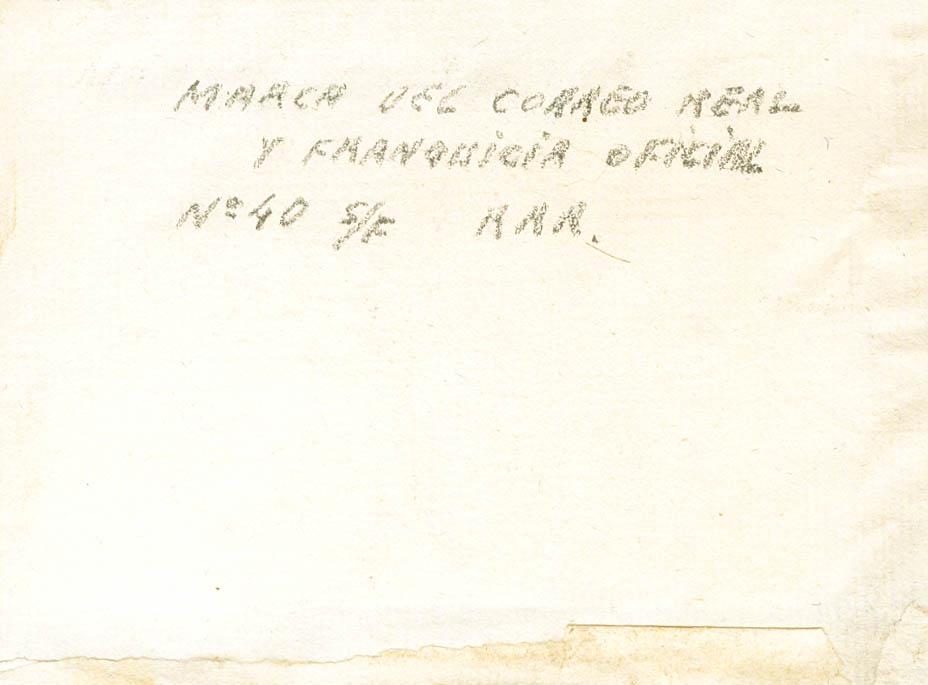 MARCA DEL CORREO REAL
Y FRANQUICIA OFICIAL
Nº 40 S/F RRR.